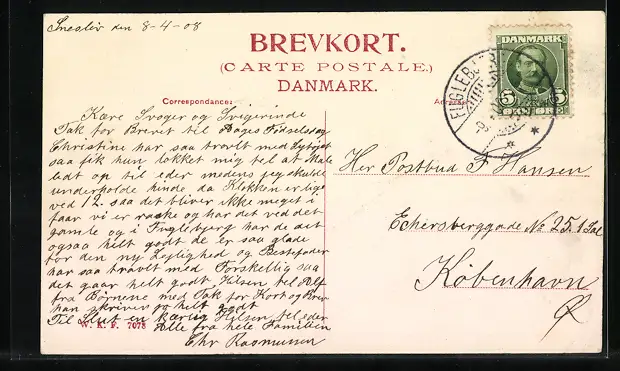 Sneslev den 8-4-08
BREVKORT.
(CARTE POSTALE.)
DANMARK.
Correspondance:
Kære Svoger og Svigerinde
Tak for Brevet til Aages Fødselsdag
Christine har saa travlt med Sytøjet
saa fik hun lokket mig tel at Male
lidt op til eder medens jeg skulde
underholde hinde da Klokken er lige
ved 12. saa det bliver ikke meget i
faar vi er raske og har det ved det
gamle og i Fuglebjerg har de det
ogsaa helt godt de er saa glade
for den ny Lejlighed og Bestefader
har saa travlt med Forskellig saa
det gaar helt godt Hilsen tel Alf
fra Børnene med Tak for Kort og Brev
han skriver helt godt
Til Slut en kærlig Hilsen tel eder
Alle fra hele Familien
Chr Rasmussen
W. K. F. 7078
DANMARK
5 ØRE
FUGLEBJ
Her Postbud F Hansen
Eckersberggade No 25 1 Sal
København
Ø